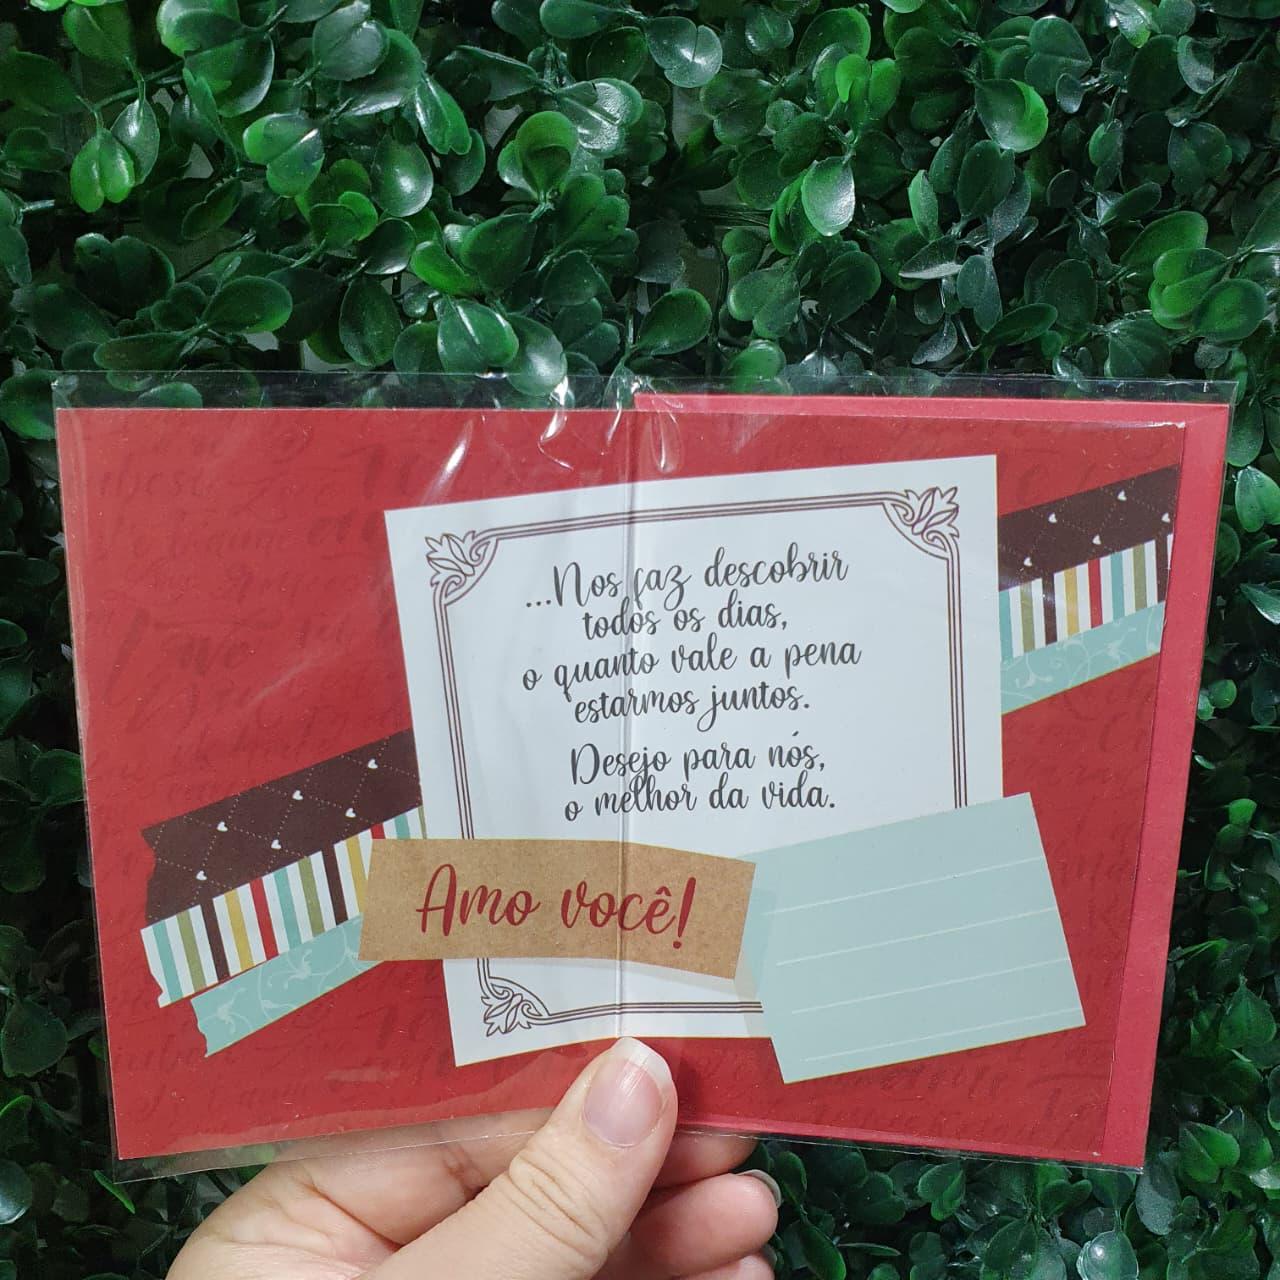 ...Nos faz descobrir
todos os dias,
o quanto vale a pena
estarmos juntos.
Desejo para nós,
o melhor da vida.
Amo você!